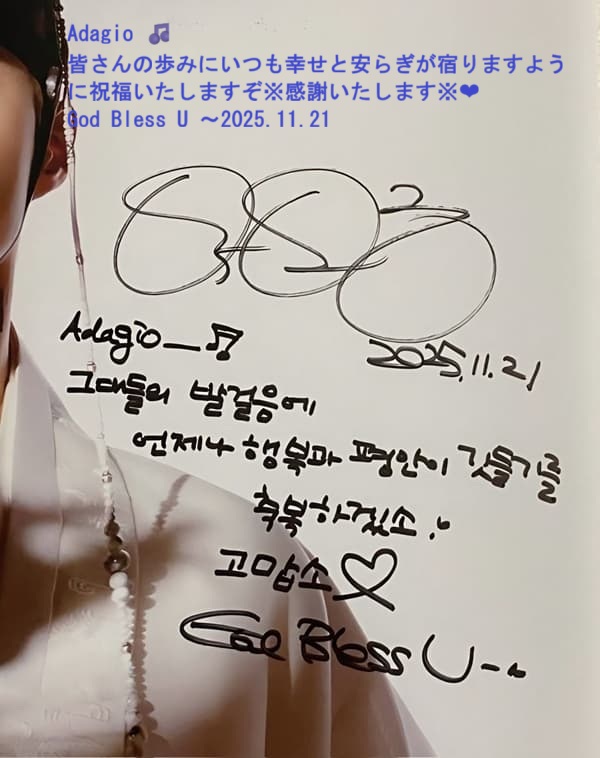 Adagio 🎵
皆さんの歩みにいつも幸せと安らぎが宿りますよう
に祝福いたしますぞ※感謝いたします※❤
God Bless U ～2025.11.21
Adagio_♫
2025.11.21
그대들의 발걸음에
언제나 행복과 평안이 깃들기를
축복하겠소 :)
고맙소♡
God Bless U ~